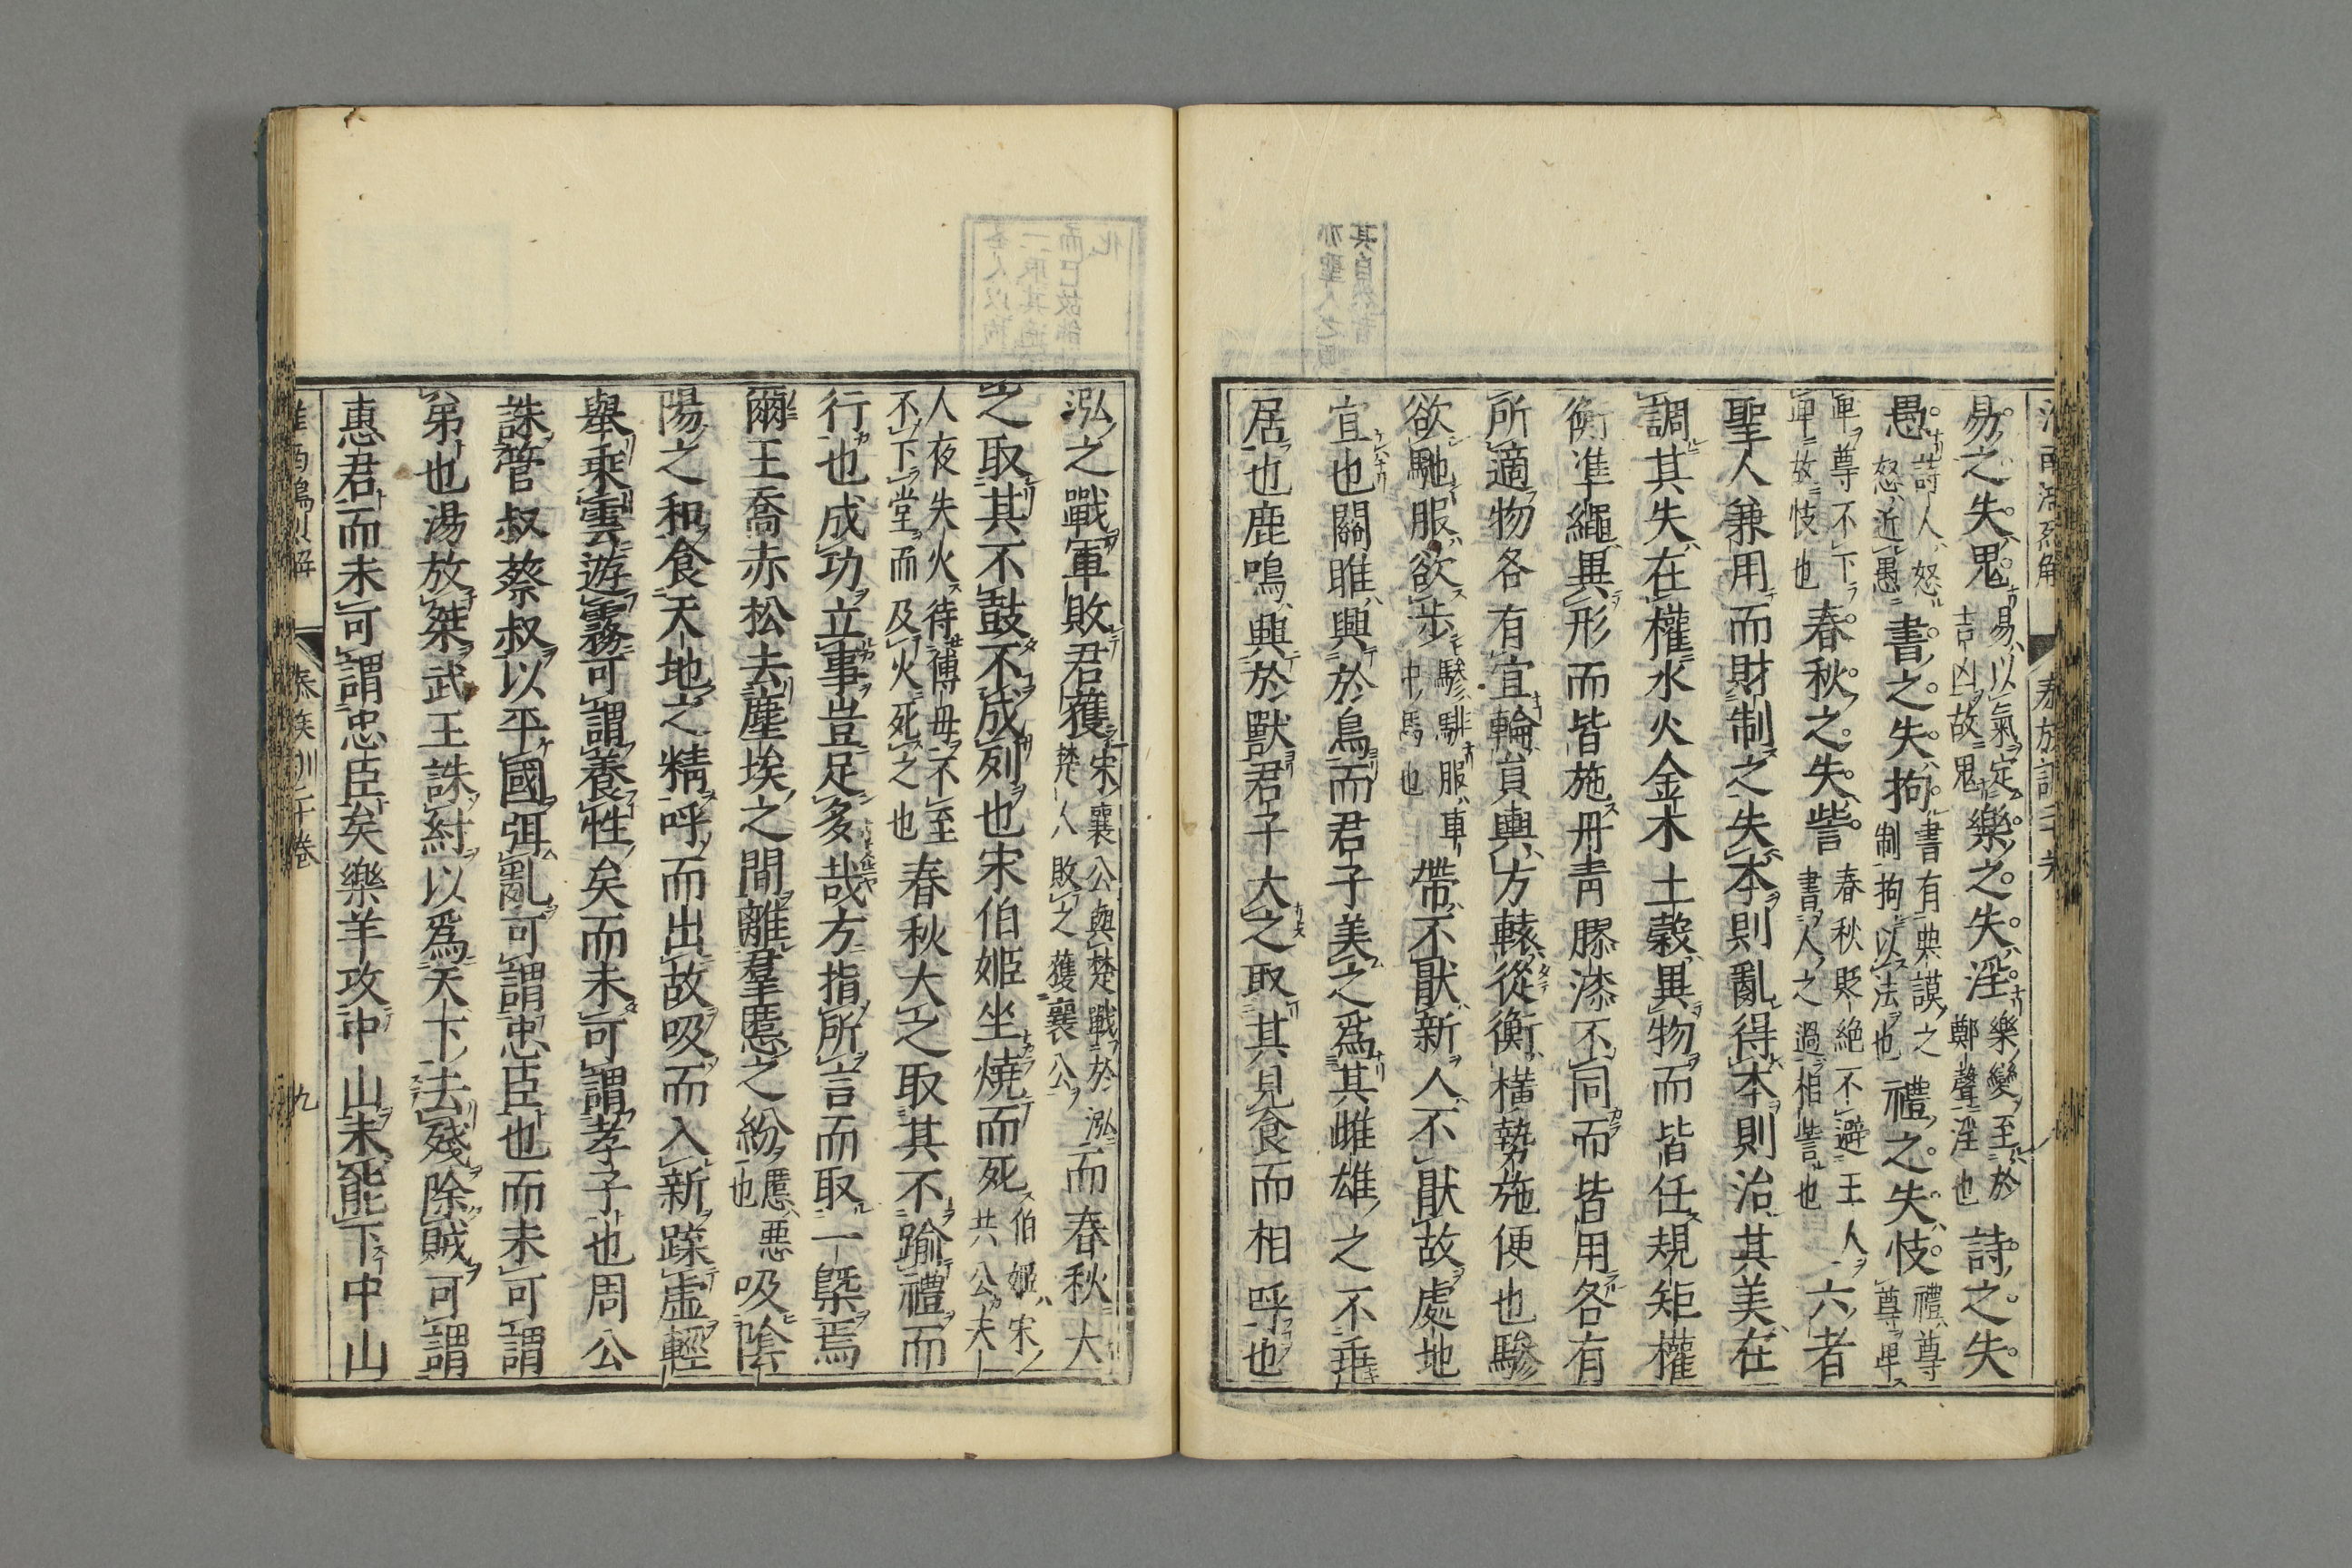 易之失鬼易以氣定吉凶故鬼樂之失淫樂變至於鄭聲淫也詩之失
愚詩人怒怒近愚書之失拘書有典謨之制拘以法也禮之失忮禮尊尊卑
卑尊不下卑故忮也春秋之失訾春秋貶絶不避王人書人之過相訾也六者
聖人兼用而財制之失本則亂得本則治其美在
調其失在權水火金木土穀異物而皆任規矩權
衡準繩異形而皆施丹青膠漆不同而皆用各有
所適物各有宜輪員輿方轅從衡橫勢施便也驂
欲馳服欲步驂騑服車中馬也帶不猒新人不猒故處地
宜也關雎興於鳥而君子美之爲其雌雄之不乖
居也鹿鳴興於獸君子大之取其見食而相呼也
泓之戰軍敗君獲宋襄公與楚戰於泓楚人敗之獲襄公而春秋大
之取其不鼓不成列也宋伯姬坐燒而死伯姬宋共公夫
人夜失火待傅母不至不下堂而及火死之也春秋大之取其不踰禮而
行也成功立事豈足多哉方指所言而取一槩焉
爾王喬赤松去塵埃之間離羣慝之紛慝惡也吸陰
陽之和食天地之精呼而出故吸而入新蹂虛輕
舉乘雲遊霧可謂養性矣而未可謂孝子也周公
誅管叔蔡叔以平國弭亂可謂忠臣也而未可謂
弟也湯放桀武王誅紂以爲天下去殘除賊可謂
惠君而未可謂忠臣矣樂羊攻中山未能下中山
泰族訓二十卷
九